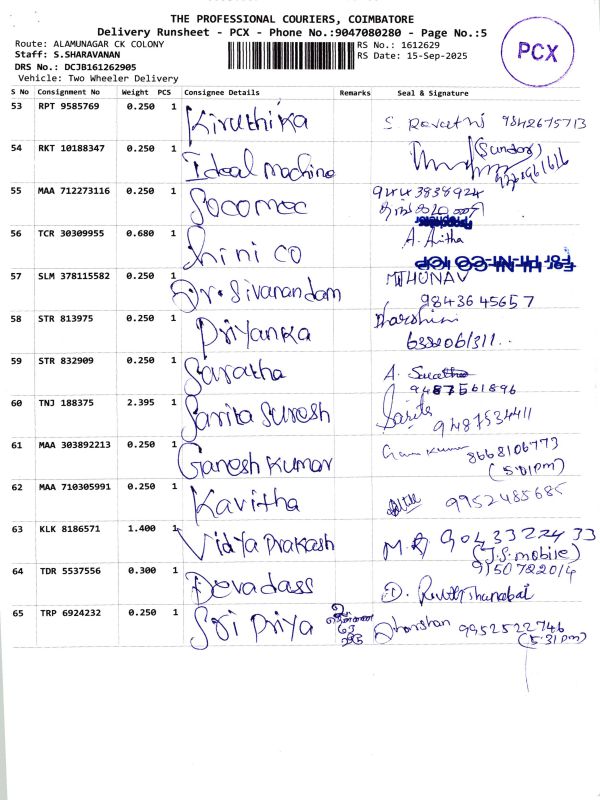 THE PROFESSIONAL COURIERS, COIMBATORE
Delivery Runsheet - PCX - Phone No.:9047080280 - Page No.:5
Route: ALAMUNAGAR CK COLONY
RS No.: 1612629
Staff: S.SHARAVANAN
RS Date: 15-Sep-2025
DRS No.: DCJB161262905
Vehicle: Two Wheeler Delivery
PCX
S No Consignment No Weight PCS Consignee Details Remarks Seal & Signature
53 RPT 9585769 0.250 1 Kiruthika S Revathi 9842675713
54 RKT 10188347 0.250 1 Ideal machine (Sundar)
55 MAA 712273116 0.250 1 Socomec 9443838924
56 TCR 30309955 0.680 1 Shini CO A. Anitha
For HI-NI-CO TOP
57 SLM 378115582 0.250 1 Dr. Sivanandam MITHUNAV
9843645657
58 STR 813975 0.250 1 Priyanka Dharshini
59 STR 832909 0.250 1 Saratha A.
9487561896
60 TNJ 188375 2.395 1 Sarita Suresh Sarita
9487534411
61 MAA 303892213 0.250 1 Ganesh Kumar 8668106773
(5:01pm)
62 MAA 710305991 0.250 1 Kavitha 9952485685
63 KLK 8186571 1.400 1 Vidya Prakash M.R 9043322433
(J.S. mobile)
9150782014
64 TDR 5537556 0.300 1 Devadass D.
65 TRP 6924232 0.250 1 Sri Priya Dharshan 9952522746
(5:31pm)